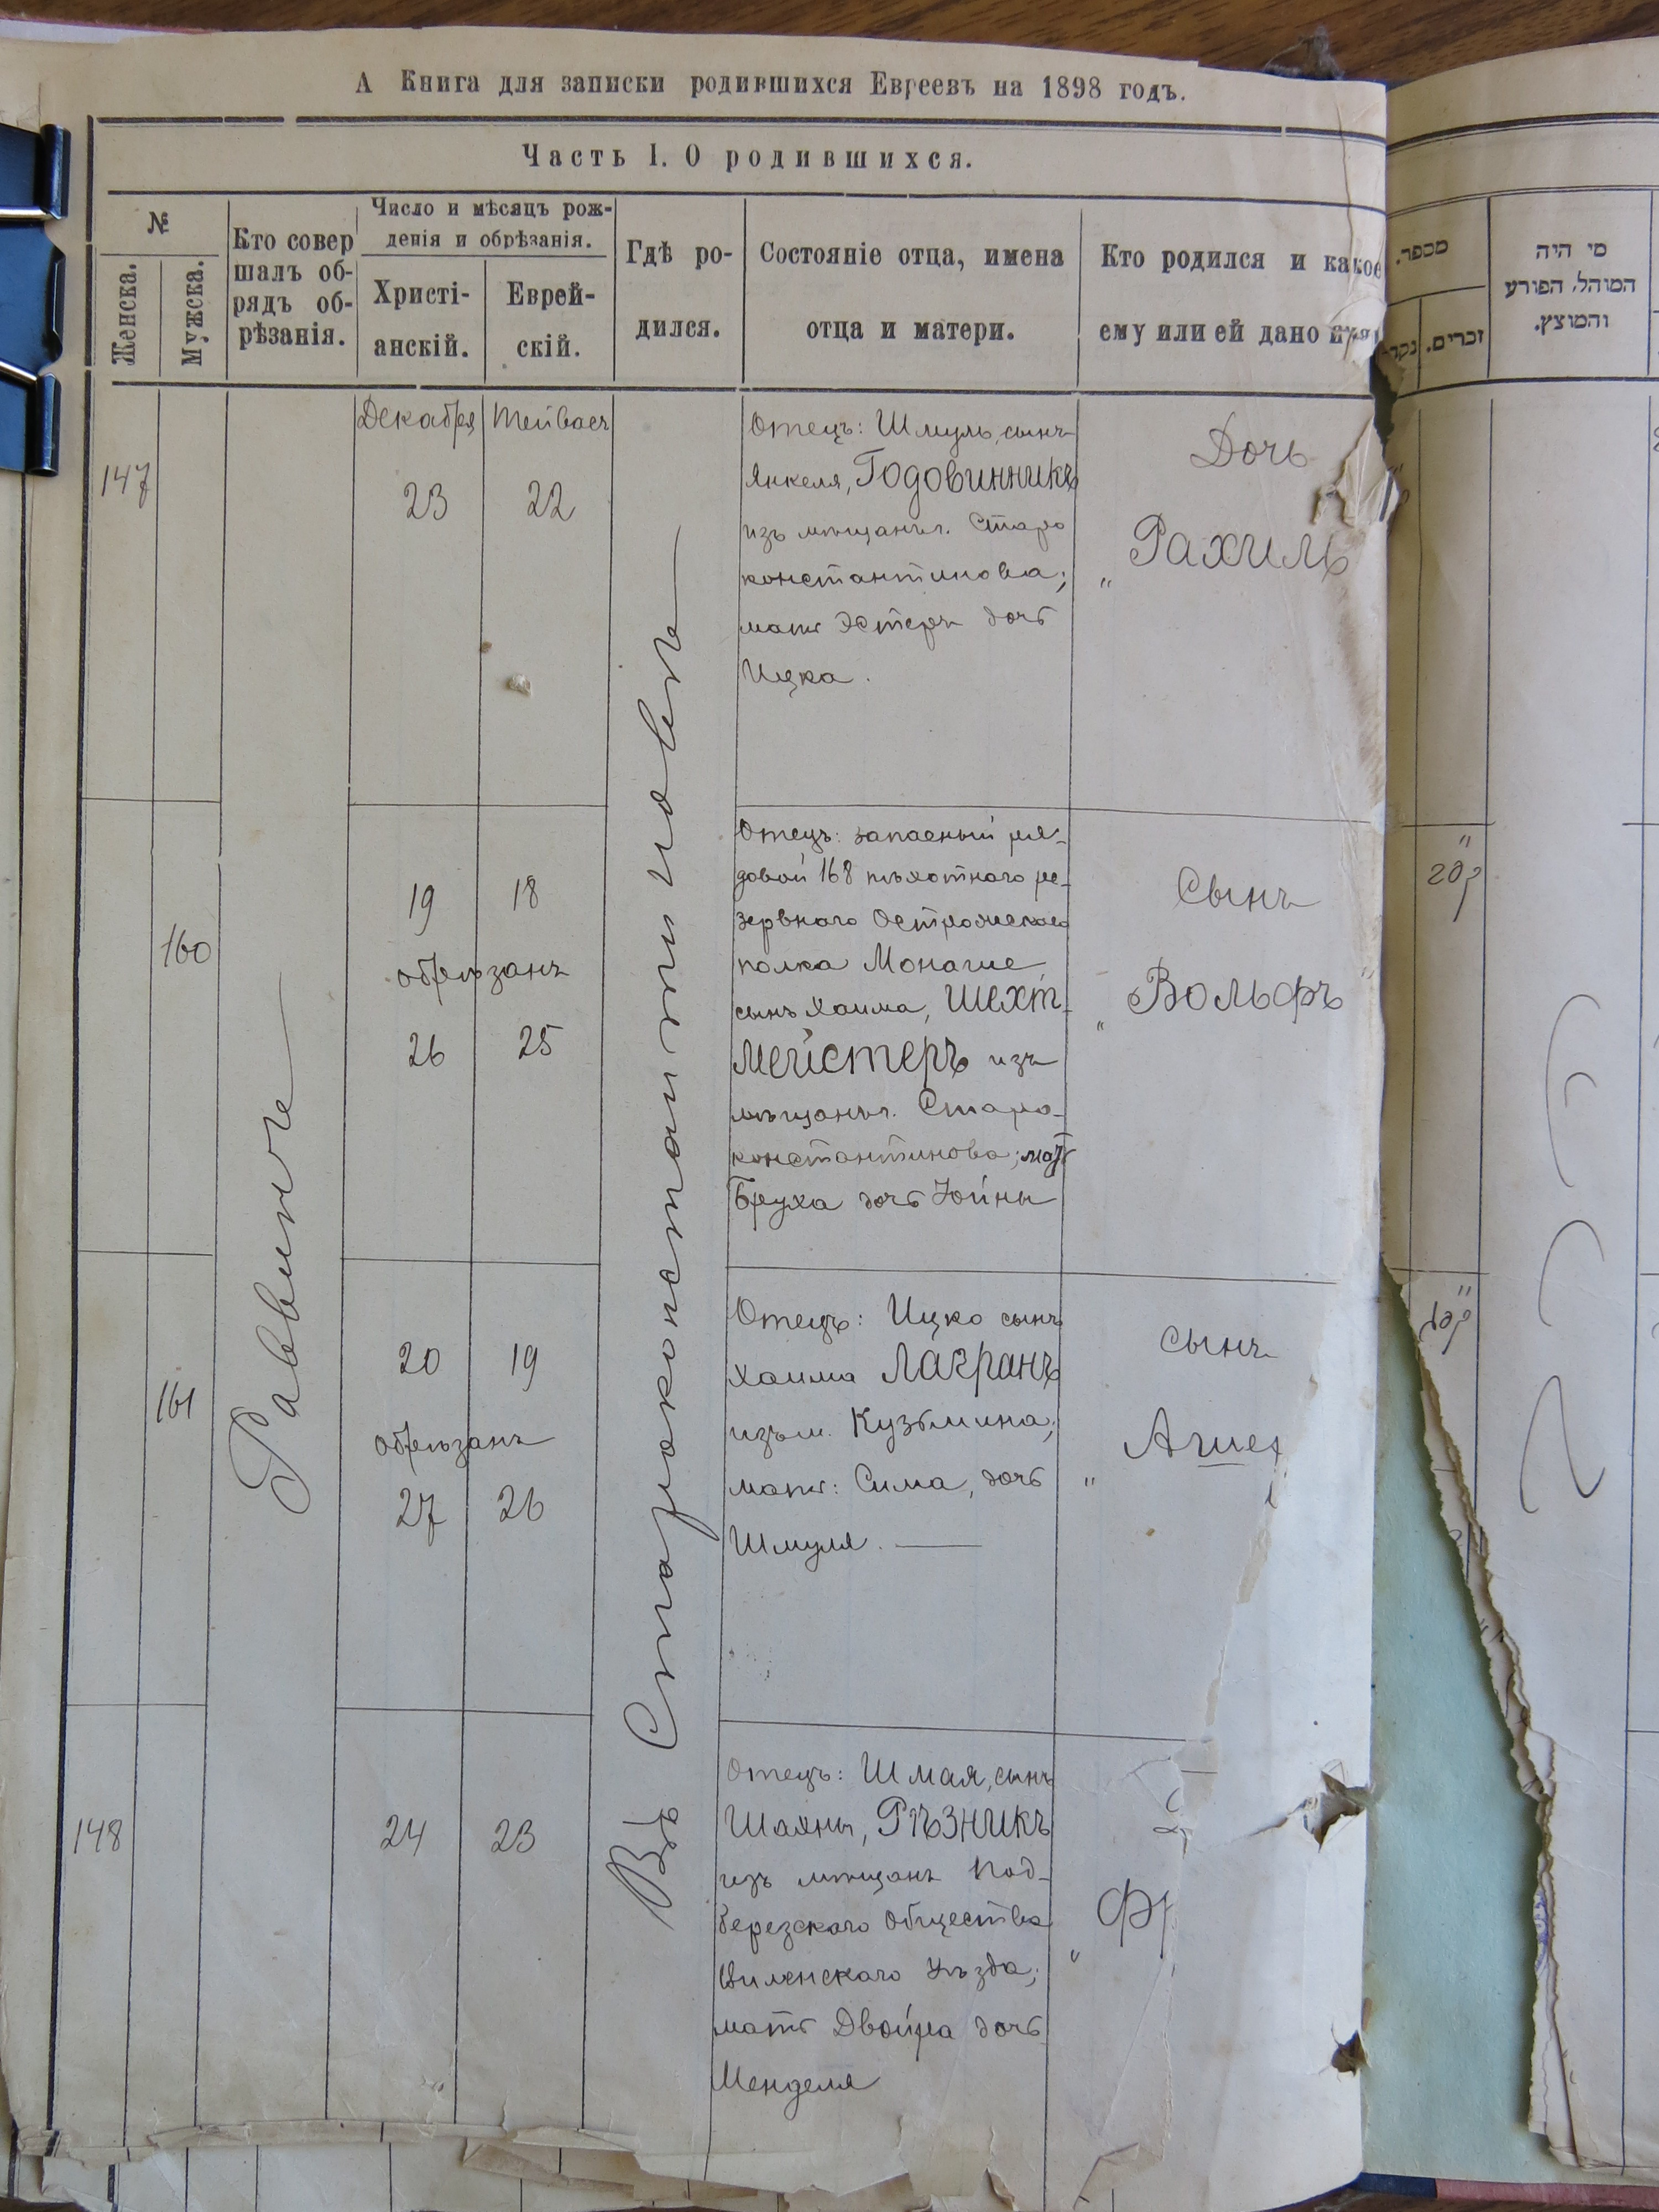 А Книга для записки родившихся Евреевъ на 1898 годъ.
Часть I. О родившихся.
№
Женска.
Мужска.
Кто совер
шалъ об-
рядъ об-
рѣзанія.
Число и мѣсяцъ рож-
денія и обрѣзанія.
Христі-
анскій.
Еврей-
скій.
Гдѣ ро-
дился.
Состояніе отца, имена
отца и матери.
Кто родился и какое
ему или ей дано
מספר.
זכרים.
מי היה
המוהל, הפורע
והמוצץ.
Раввинъ
Въ Староконстантиновѣ
147
Декабря
23
Тейвасъ
22
Отецъ: Шмуль, сынъ
Янкеля, Годовинникъ
изъ мѣщанъ г. Старо
константинова;
мать Эстеръ дочь
Ицка.
Дочь
„ Рахиль
160
19
18
обрѣзанъ
26
25
Отецъ: запасный ря-
довой 168 пѣхотнаго ре-
зервнаго Острожскаго
полка Монаше
сынъ Хаима, Шехт-
мейстеръ изъ
мѣщанъ г. Старо-
константинова; мать
Бруха дочь Юйны
Сынъ
„ Вольфъ "
161
20
19
обрѣзанъ
27
26
Отецъ: Ицко сынъ
Хаима Лагранъ
изъ м. Кузьмина;
мать: Сима, дочь
Шмуля.
Сынъ
„ Ашер
148
24
23
Отецъ: Шмая, сынъ
Шахны, Рѣзникъ
изъ мѣщанъ Под-
березскаго Общества
Виленскаго Уѣзда;
мать Двойра дочь
Менделя
„ Фр